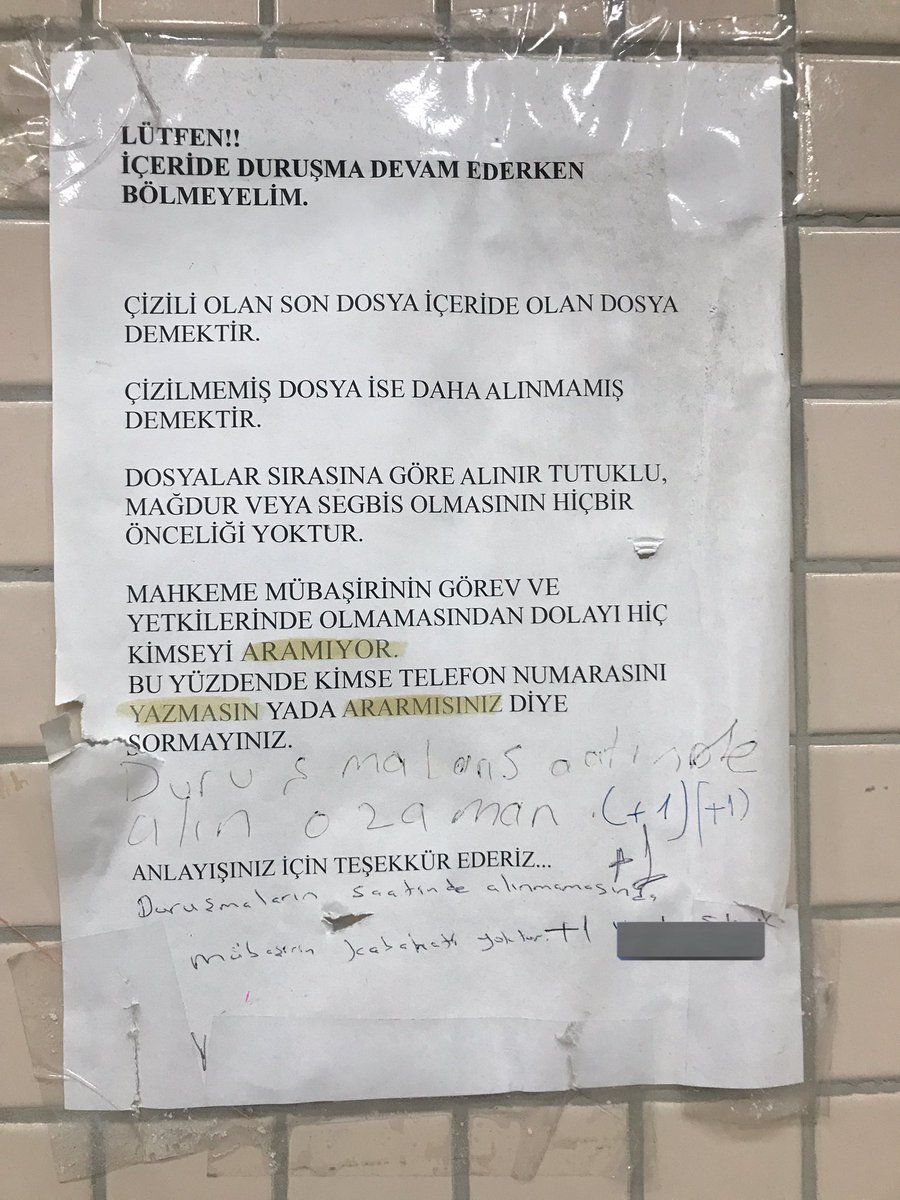 LÜTFEN!!
İÇERİDE DURUŞMA DEVAM EDERKEN
BÖLMEYELİM.
ÇİZİLİ OLAN SON DOSYA İÇERİDE OLAN DOSYA
DEMEKTİR.
ÇİZİLMEMİŞ DOSYA İSE DAHA ALINMAMIŞ
DEMEKTİR.
DOSYALAR SIRASINA GÖRE ALINIR TUTUKLU,
MAĞDUR VEYA SEGBİS OLMASININ HİÇBİR
ÖNCELİĞİ YOKTUR.
MAHKEME MÜBAŞİRİNİN GÖREV VE
YETKİLERİNDE OLMAMASINDAN DOLAYI HİÇ
KİMSEYİ ARAMIYOR.
BU YÜZDENDE KİMSE TELEFON NUMARASINI
YAZMASIN YADA ARARMISINIZ DİYE
SORMAYINIZ.
Duruşmaları
alın o zaman (+1) (+1)
+1
ANLAYIŞINIZ İÇİN TEŞEKKÜR EDERİZ...
Duruşmaların saatinde alınmamasında
mübaşirin kabahati yoktur. +1